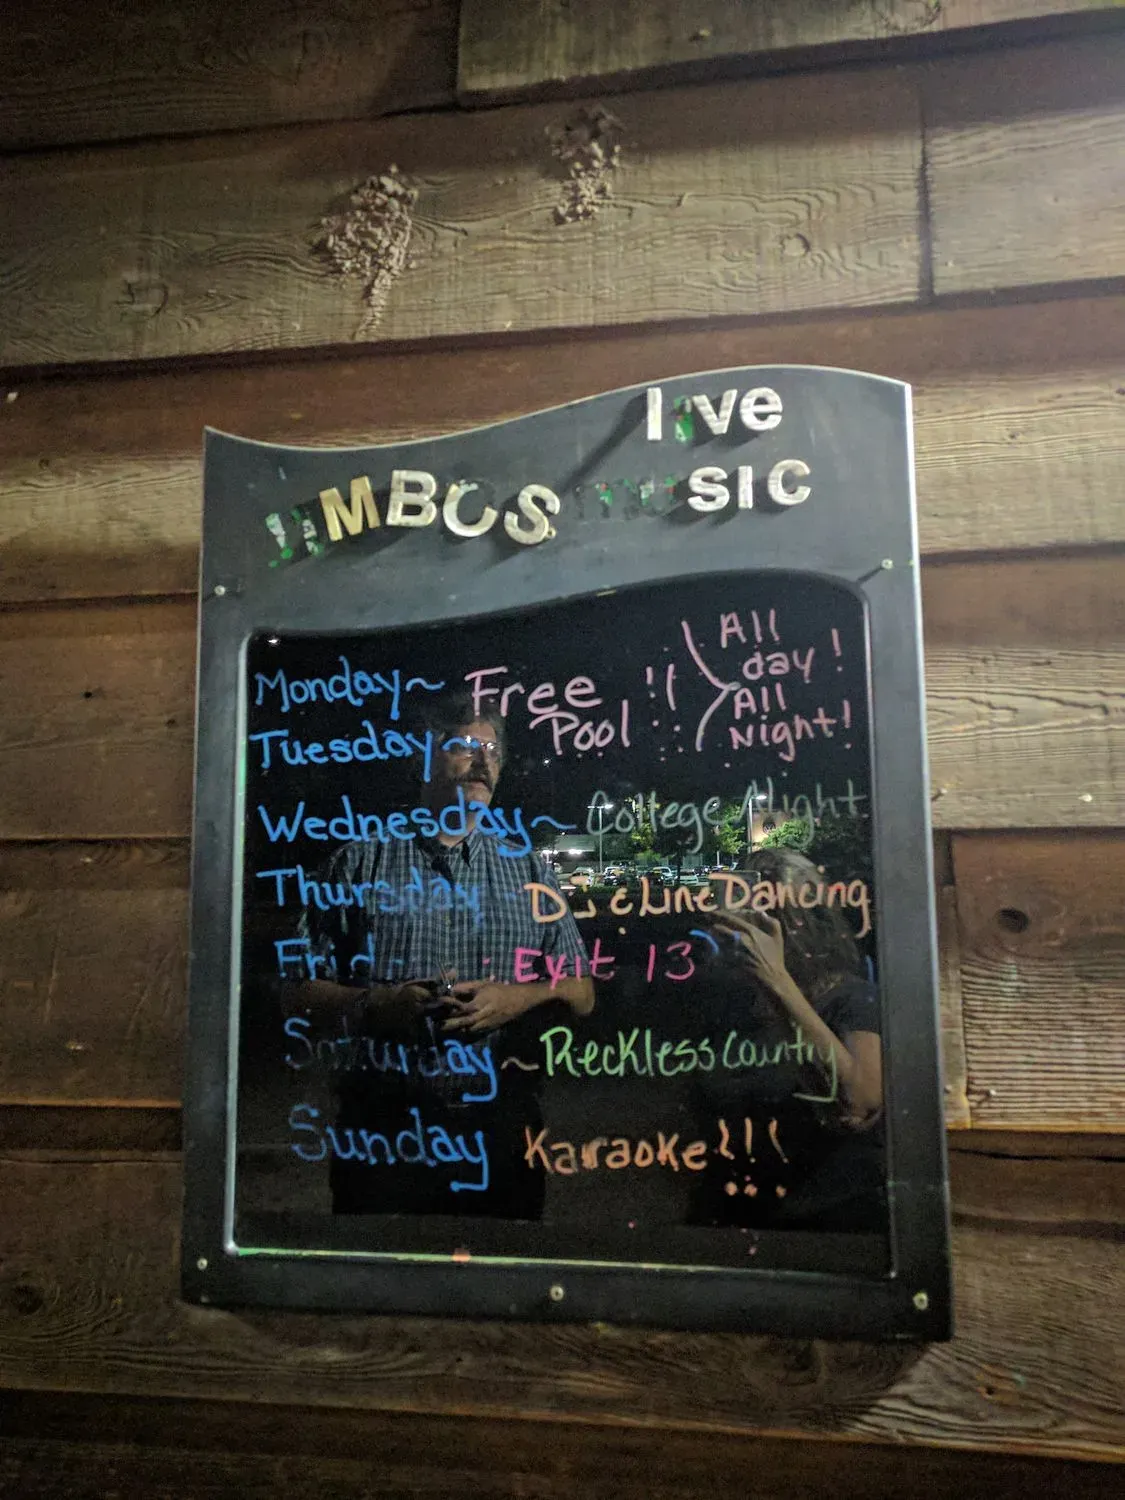 live
JIMBOS music
Monday~ Free Pool !! All day! All Night!
Tuesday~
Wednesday~ College Night
Thursday - D Line Dancing
Frid Exit 13
Saturday~ Reckless Country
Sunday Karaoke!!!